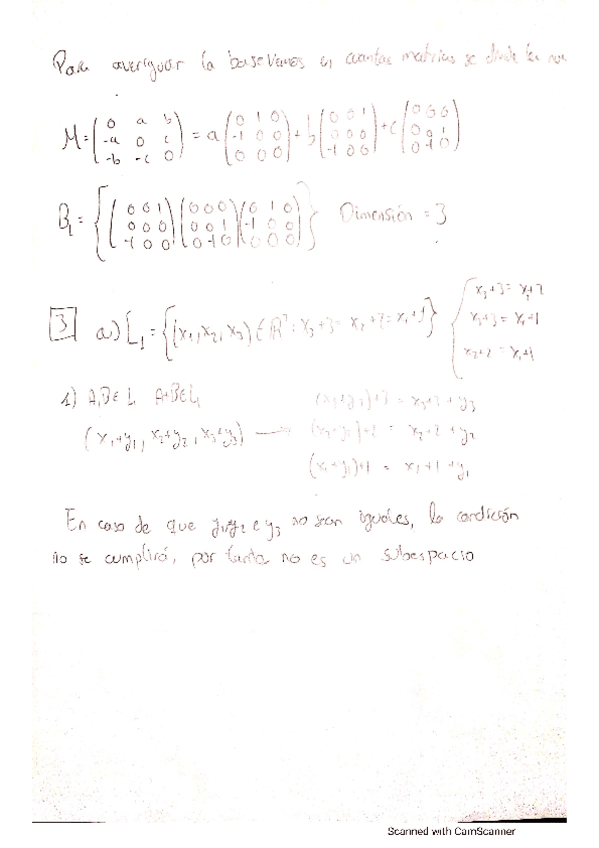 Para averiguar la base vemos en cuantas matrices se divide la
M = ( 0 a b / -a 0 c / -b -c 0 ) = a ( 0 1 0 / -1 0 0 / 0 0 0 ) + b ( 0 0 1 / 0 0 0 / -1 0 0 ) + c ( 0 0 0 / 0 0 1 / 0 -1 0 )
B₁ = { ( 0 0 1 / 0 0 0 / -1 0 0 ) ( 0 0 0 / 0 0 1 / 0 -1 0 ) ( 0 1 0 / -1 0 0 / 0 0 0 ) } Dimensión = 3
3 a) L₁ = { (x₁, x₂, x₃) ∈ ℝ³ : x₃+3 = x₂+2 = x₁+1 } { x₃+3 = x₂+2
x₃+3 = x₁+1
x₂+2 = x₁+1
1) A,B ∈ L₁ A+B ∈ L₁
(x₁+y₁, x₂+y₂, x₃+y₃) → = x₃+3+y₃
= x₂+2+y₂
(x₁+y₁)+1 = x₁+1+y₁
En caso de que y₁, y₂ e y₃ no sean iguales, la condición
no se cumplirá, por tanto no es un subespacio
Scanned with CamScanner